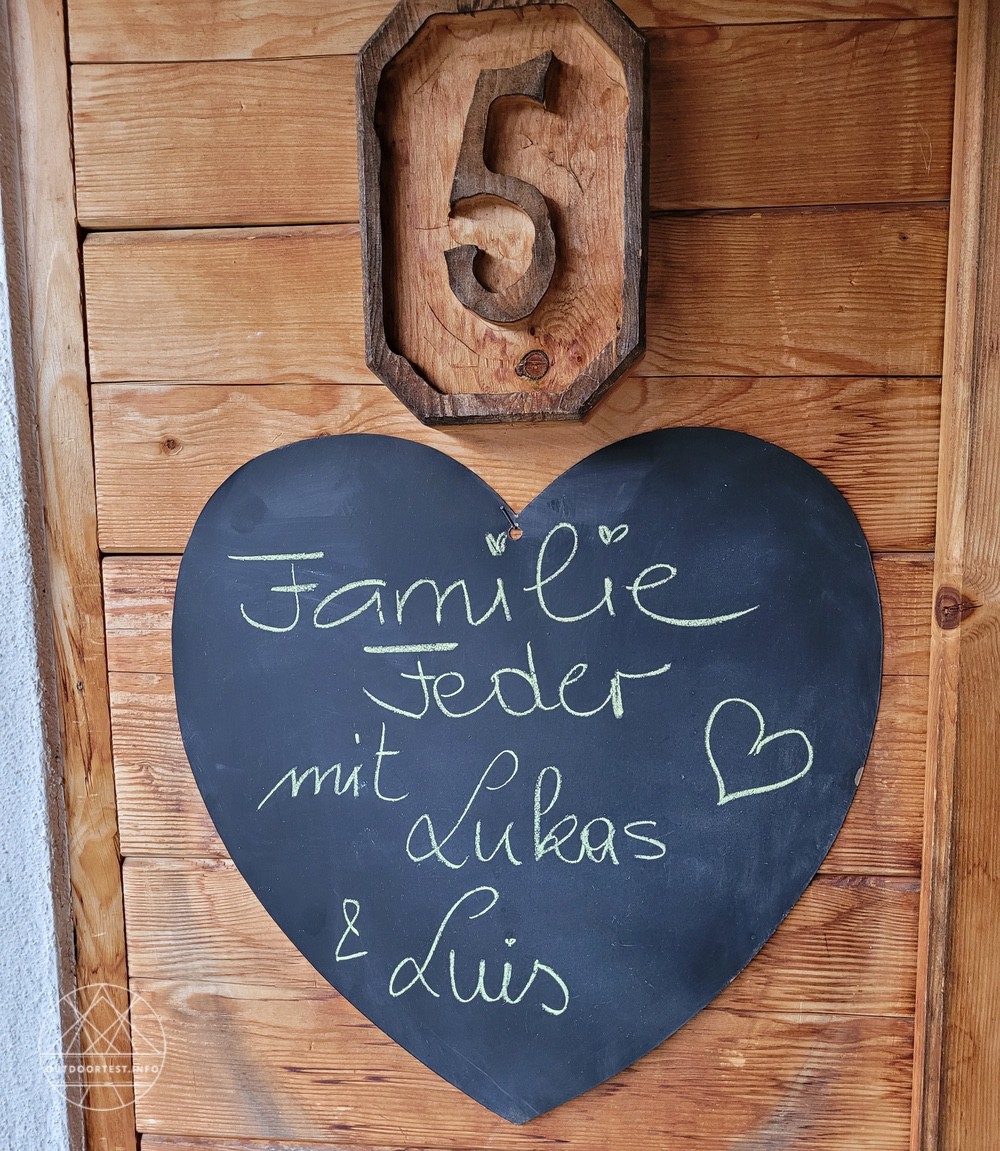 5
Familie
Feder
mit
Lukas
& Luis
OUTDOORTEST.INFO